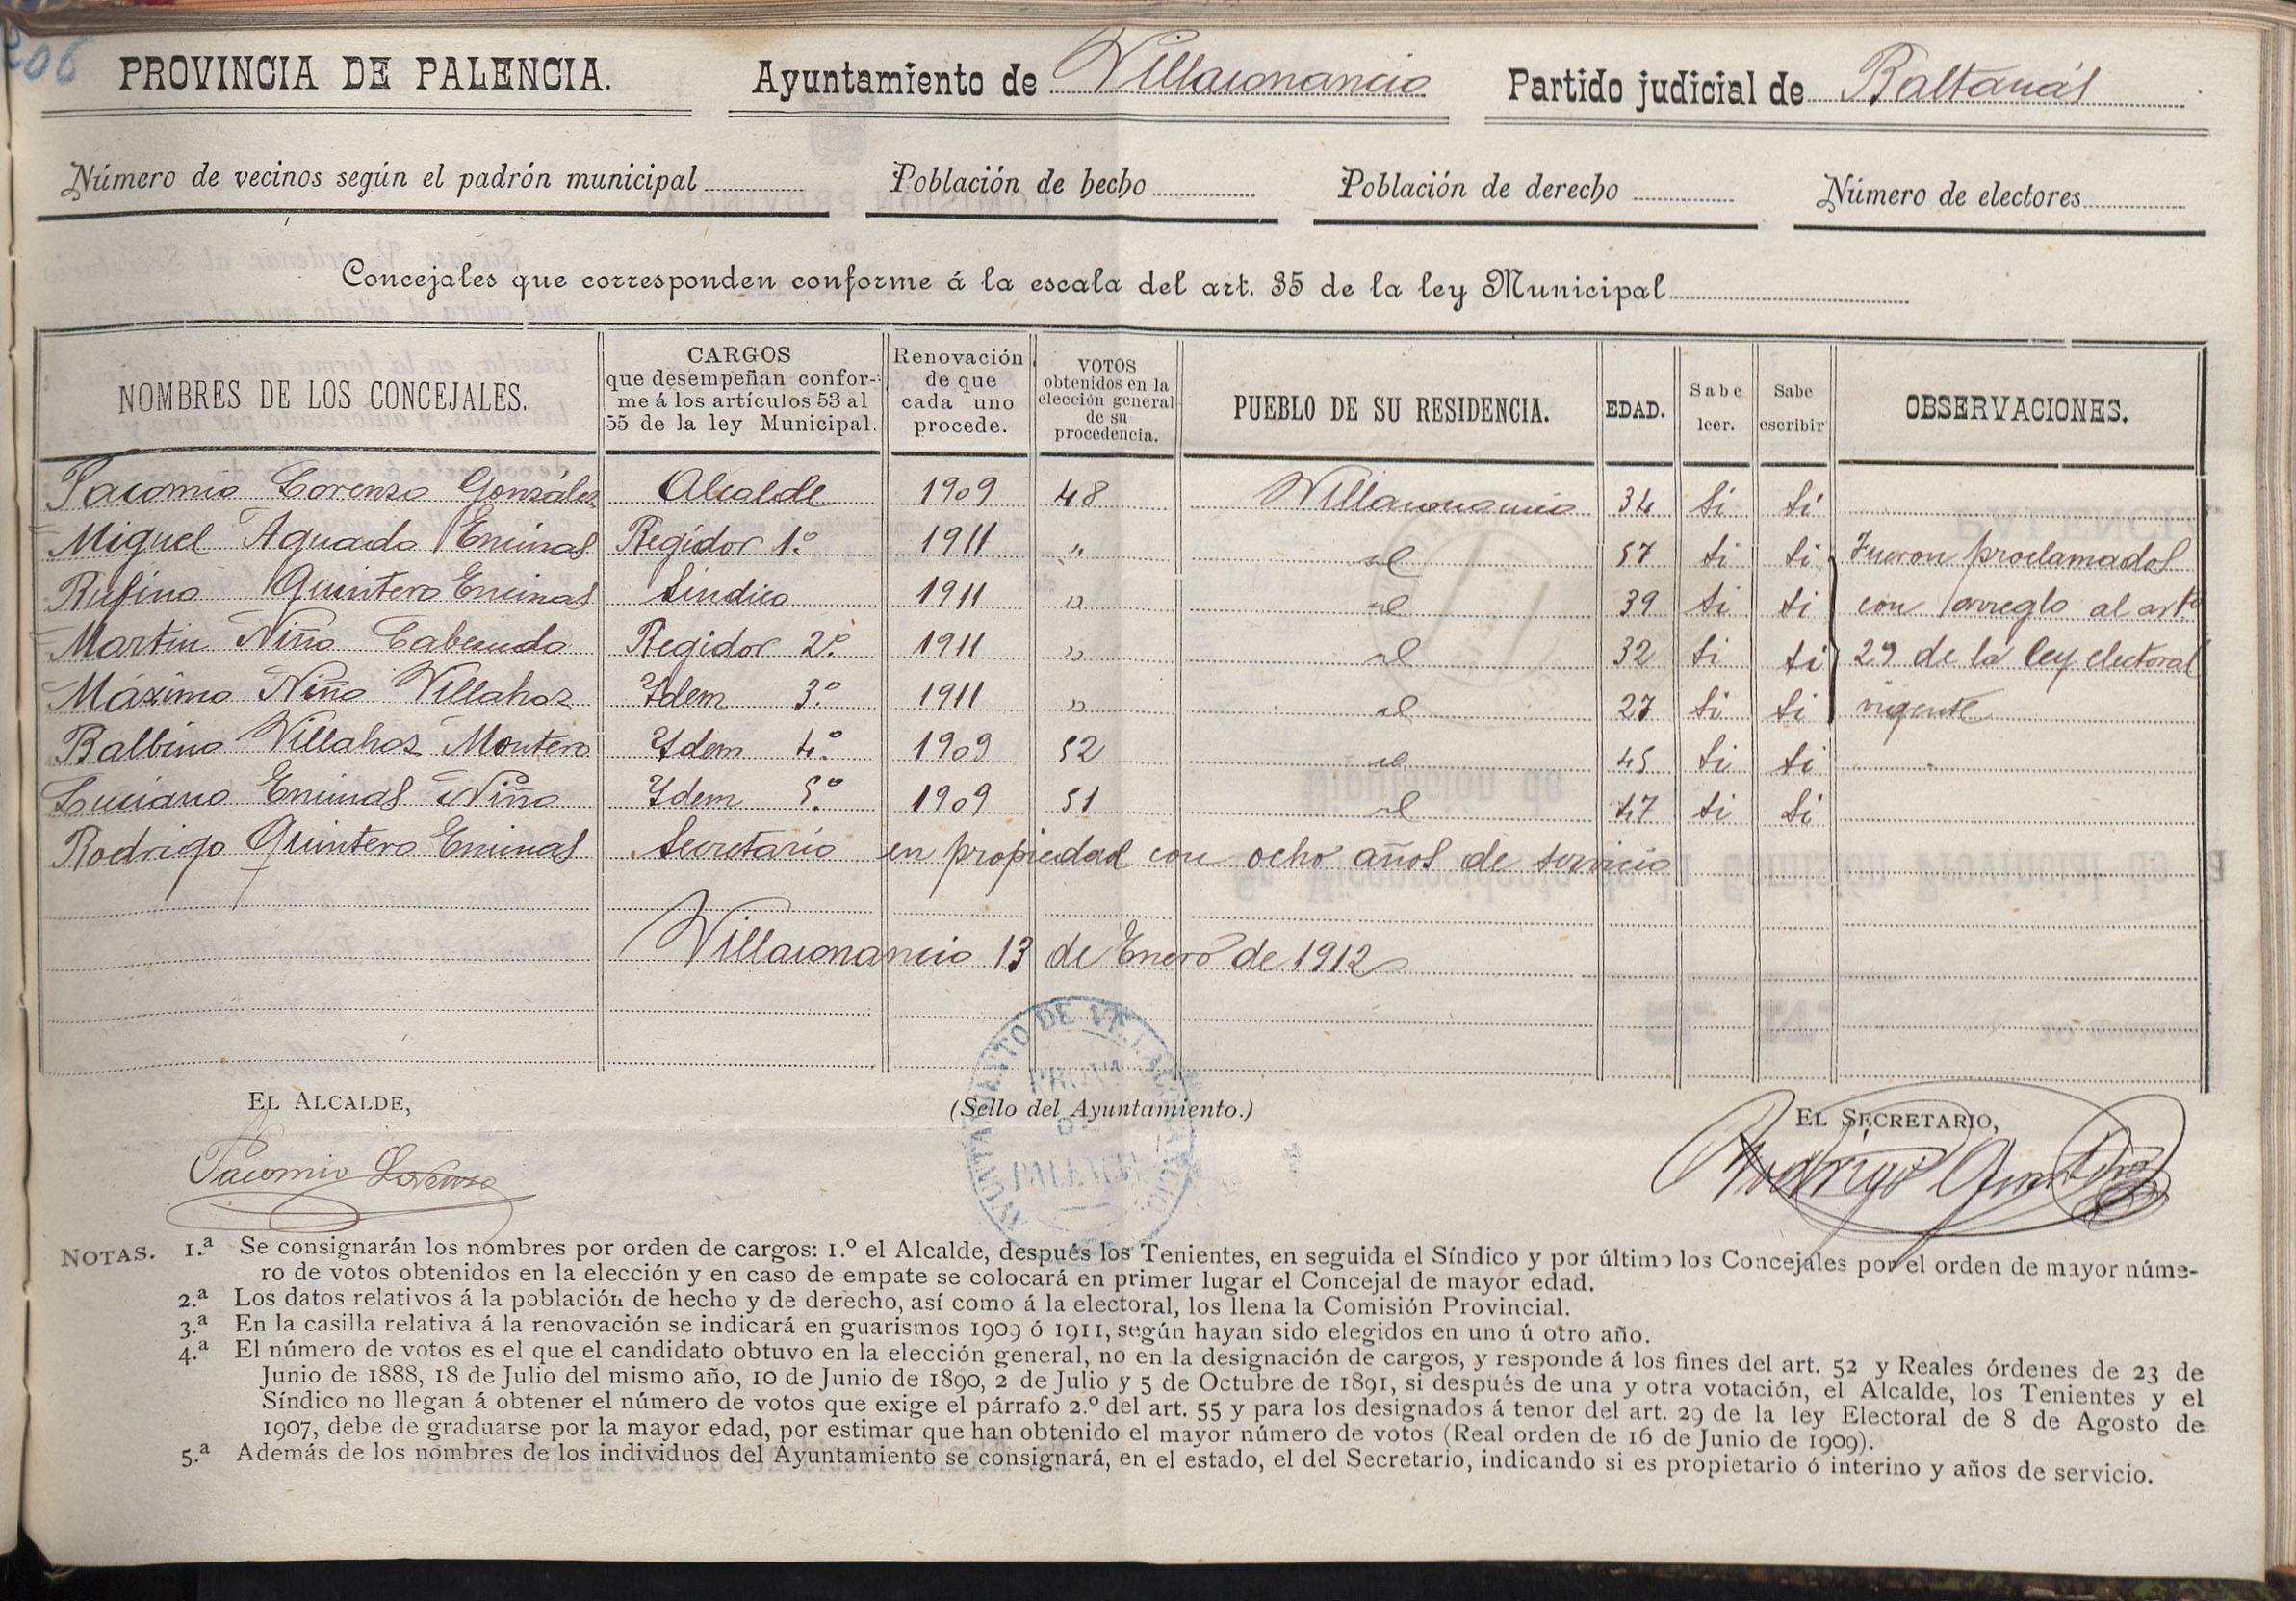 206
PROVINCIA DE PALENCIA. Ayuntamiento de Villaconancio Partido judicial de Baltanás
Número de vecinos según el padrón municipal Población de hecho Población de derecho Número de electores
Concejales que corresponden conforme á la escala del art. 35 de la ley Municipal
NOMBRES DE LOS CONCEJALES. CARGOS que desempeñan conforme á los artículos 53 al 55 de la ley Municipal. Renovación de que cada uno procede. VOTOS obtenidos en la elección general de su procedencia. PUEBLO DE SU RESIDENCIA. EDAD. Sabe leer. Sabe escribir OBSERVACIONES.
Pacomio Lorenzo González Alcalde 1909 48 Villaconancio 34 Si Si
Miguel Aguado Encinas Regidor 1.º 1911 " id 57 Si Si Fueron proclamados
Rufino Quintero Encinas Sindico 1911 " id 39 Si Si con arreglo al artº
Martin Niño Cabezudo Regidor 2.º 1911 " id 32 Si Si 29 de la ley electoral
Máximo Niño Villahoz Idem 3.º 1911 " id 27 Si Si vigente
Balbino Villahoz Montero Idem 4.º 1909 52 id 45 Si Si
Luciano Encinas Niño Idem 5.º 1909 51 id 47 Si Si
Rodrigo Quintero Encinas Secretario en propiedad con ocho años de servicio
Villaconancio 13 de Enero de 1912
EL ALCALDE, (Sello del Ayuntamiento.) EL SECRETARIO,
Pacomio Lorenzo Rodrigo Quintero
AYUNTAMIENTO DE VILLACONANCIO
PALENCIA
NOTAS. 1.ª Se consignarán los nombres por orden de cargos: 1.º el Alcalde, después los Tenientes, en seguida el Síndico y por último los Concejales por el orden de mayor núme-
ro de votos obtenidos en la elección y en caso de empate se colocará en primer lugar el Concejal de mayor edad.
2.ª Los datos relativos á la población de hecho y de derecho, así como á la electoral, los llena la Comisión Provincial.
3.ª En la casilla relativa á la renovación se indicará en guarismos 1909 ó 1911, según hayan sido elegidos en uno ú otro año.
4.ª El número de votos es el que el candidato obtuvo en la elección general, no en la designación de cargos, y responde á los fines del art. 52 y Reales órdenes de 23 de
Junio de 1888, 18 de Julio del mismo año, 10 de Junio de 1890, 2 de Julio y 5 de Octubre de 1891, si después de una y otra votación, el Alcalde, los Tenientes y el
Síndico no llegan á obtener el número de votos que exige el párrafo 2.º del art. 55 y para los designados á tenor del art. 29 de la ley Electoral de 8 de Agosto de
1907, debe de graduarse por la mayor edad, por estimar que han obtenido el mayor número de votos (Real orden de 16 de Junio de 1909).
5.ª Además de los nombres de los individuos del Ayuntamiento se consignará, en el estado, el del Secretario, indicando si es propietario ó interino y años de servicio.